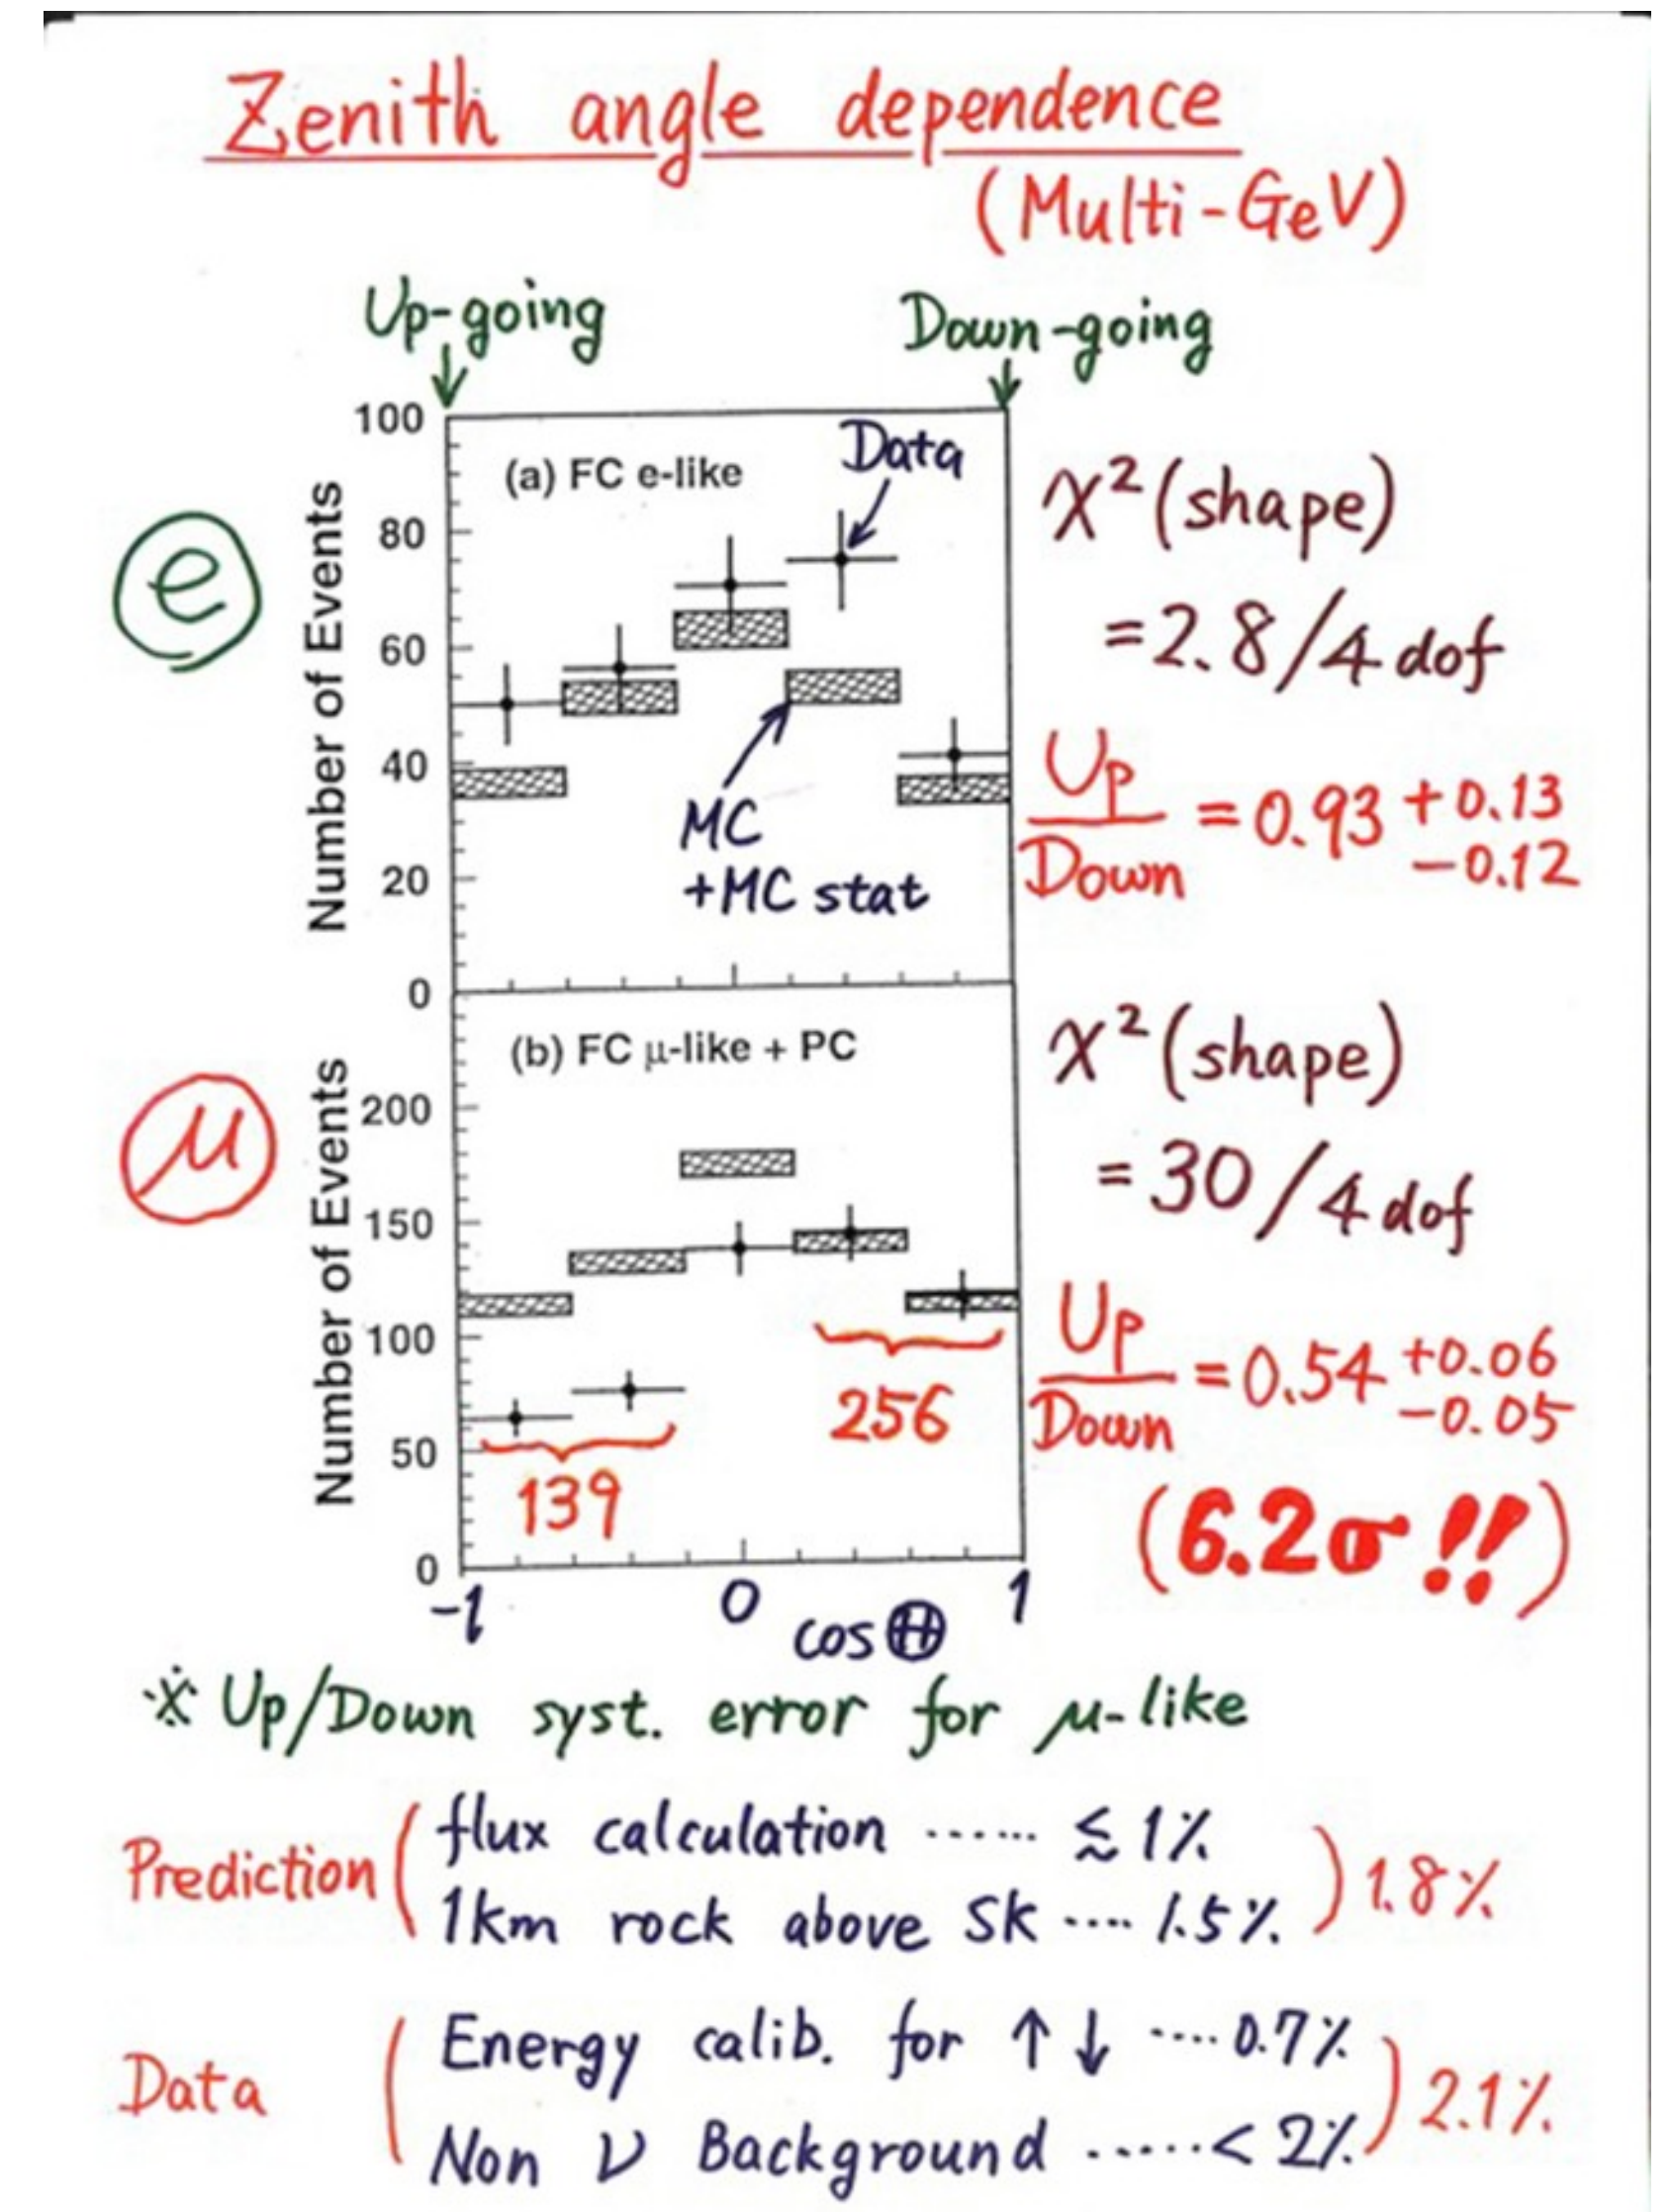 Zenith angle dependence
(Multi-GeV)
Up-going
Down-going
100
80
60
40
20
0
Number of Events
(a) FC e-like
Data
MC
+MC stat
e
χ² (shape)
= 2.8/4 dof
Up/Down = 0.93 +0.13 -0.12
200
150
100
50
0
Number of Events
(b) FC μ-like + PC
139
256
μ
χ² (shape)
= 30/4 dof
Up/Down = 0.54 +0.06 -0.05
(6.2σ!!)
-1 0 1
cosΘ
※ Up/Down syst. error for μ-like
Prediction ( flux calculation ...... ≲ 1%
1km rock above SK .... 1.5% ) 1.8%
Data ( Energy calib. for ↑ ↓ .... 0.7%
Non ν Background ...... < 2% ) 2.1%